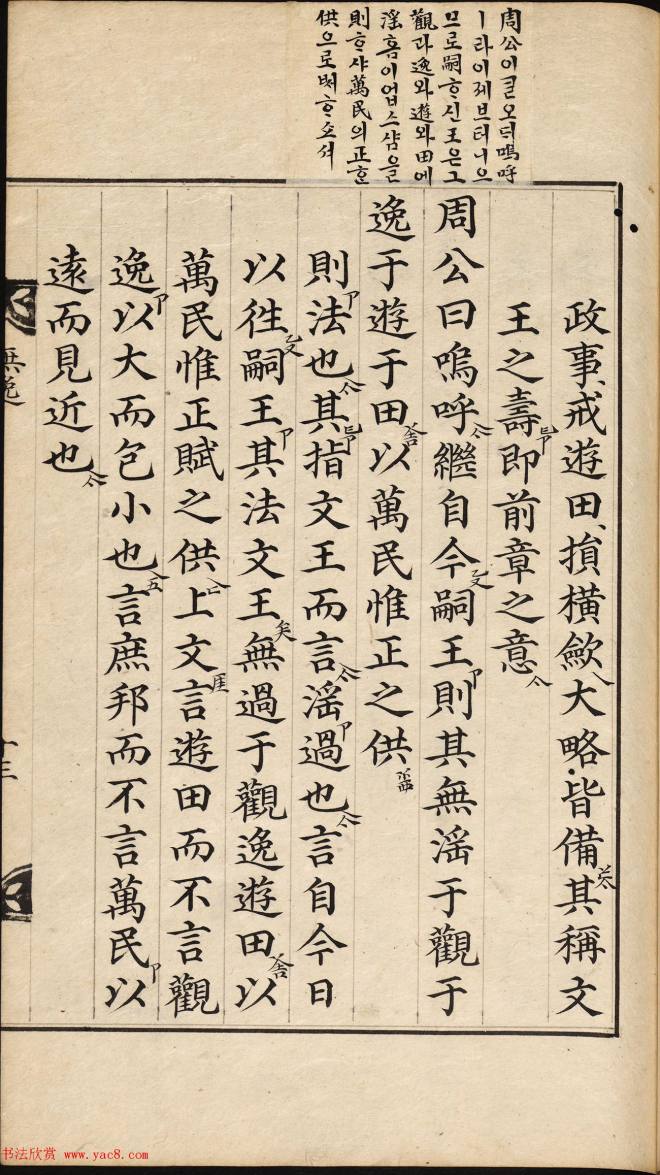 周公이ᄀᆞᆯ오ᄃᆡ嗚呼
ㅣ라이제브터니으
므로嗣ᄒᆞ신王은그
觀과逸와遊와田에
淫홈이업스샴을
則ᄒᆞ샤萬民의正ᄒᆞᆫ
供으로ᄡᅥᄒᆞ쇼셔
政事、戒遊田、損橫斂大略皆備其稱文
王之壽即前章之意
周公曰嗚呼繼自今嗣王則其無淫于觀于
逸于遊于田以萬民惟正之供
則法也其指文王而言淫過也言自今日
以徃嗣王其法文王無過于觀逸遊田以
萬民惟正賦之供上文言遊田而不言觀
逸以大而包小也言庶邦而不言萬民以
遠而見近也
無逸
十三
书法欣赏 www.yac8.com